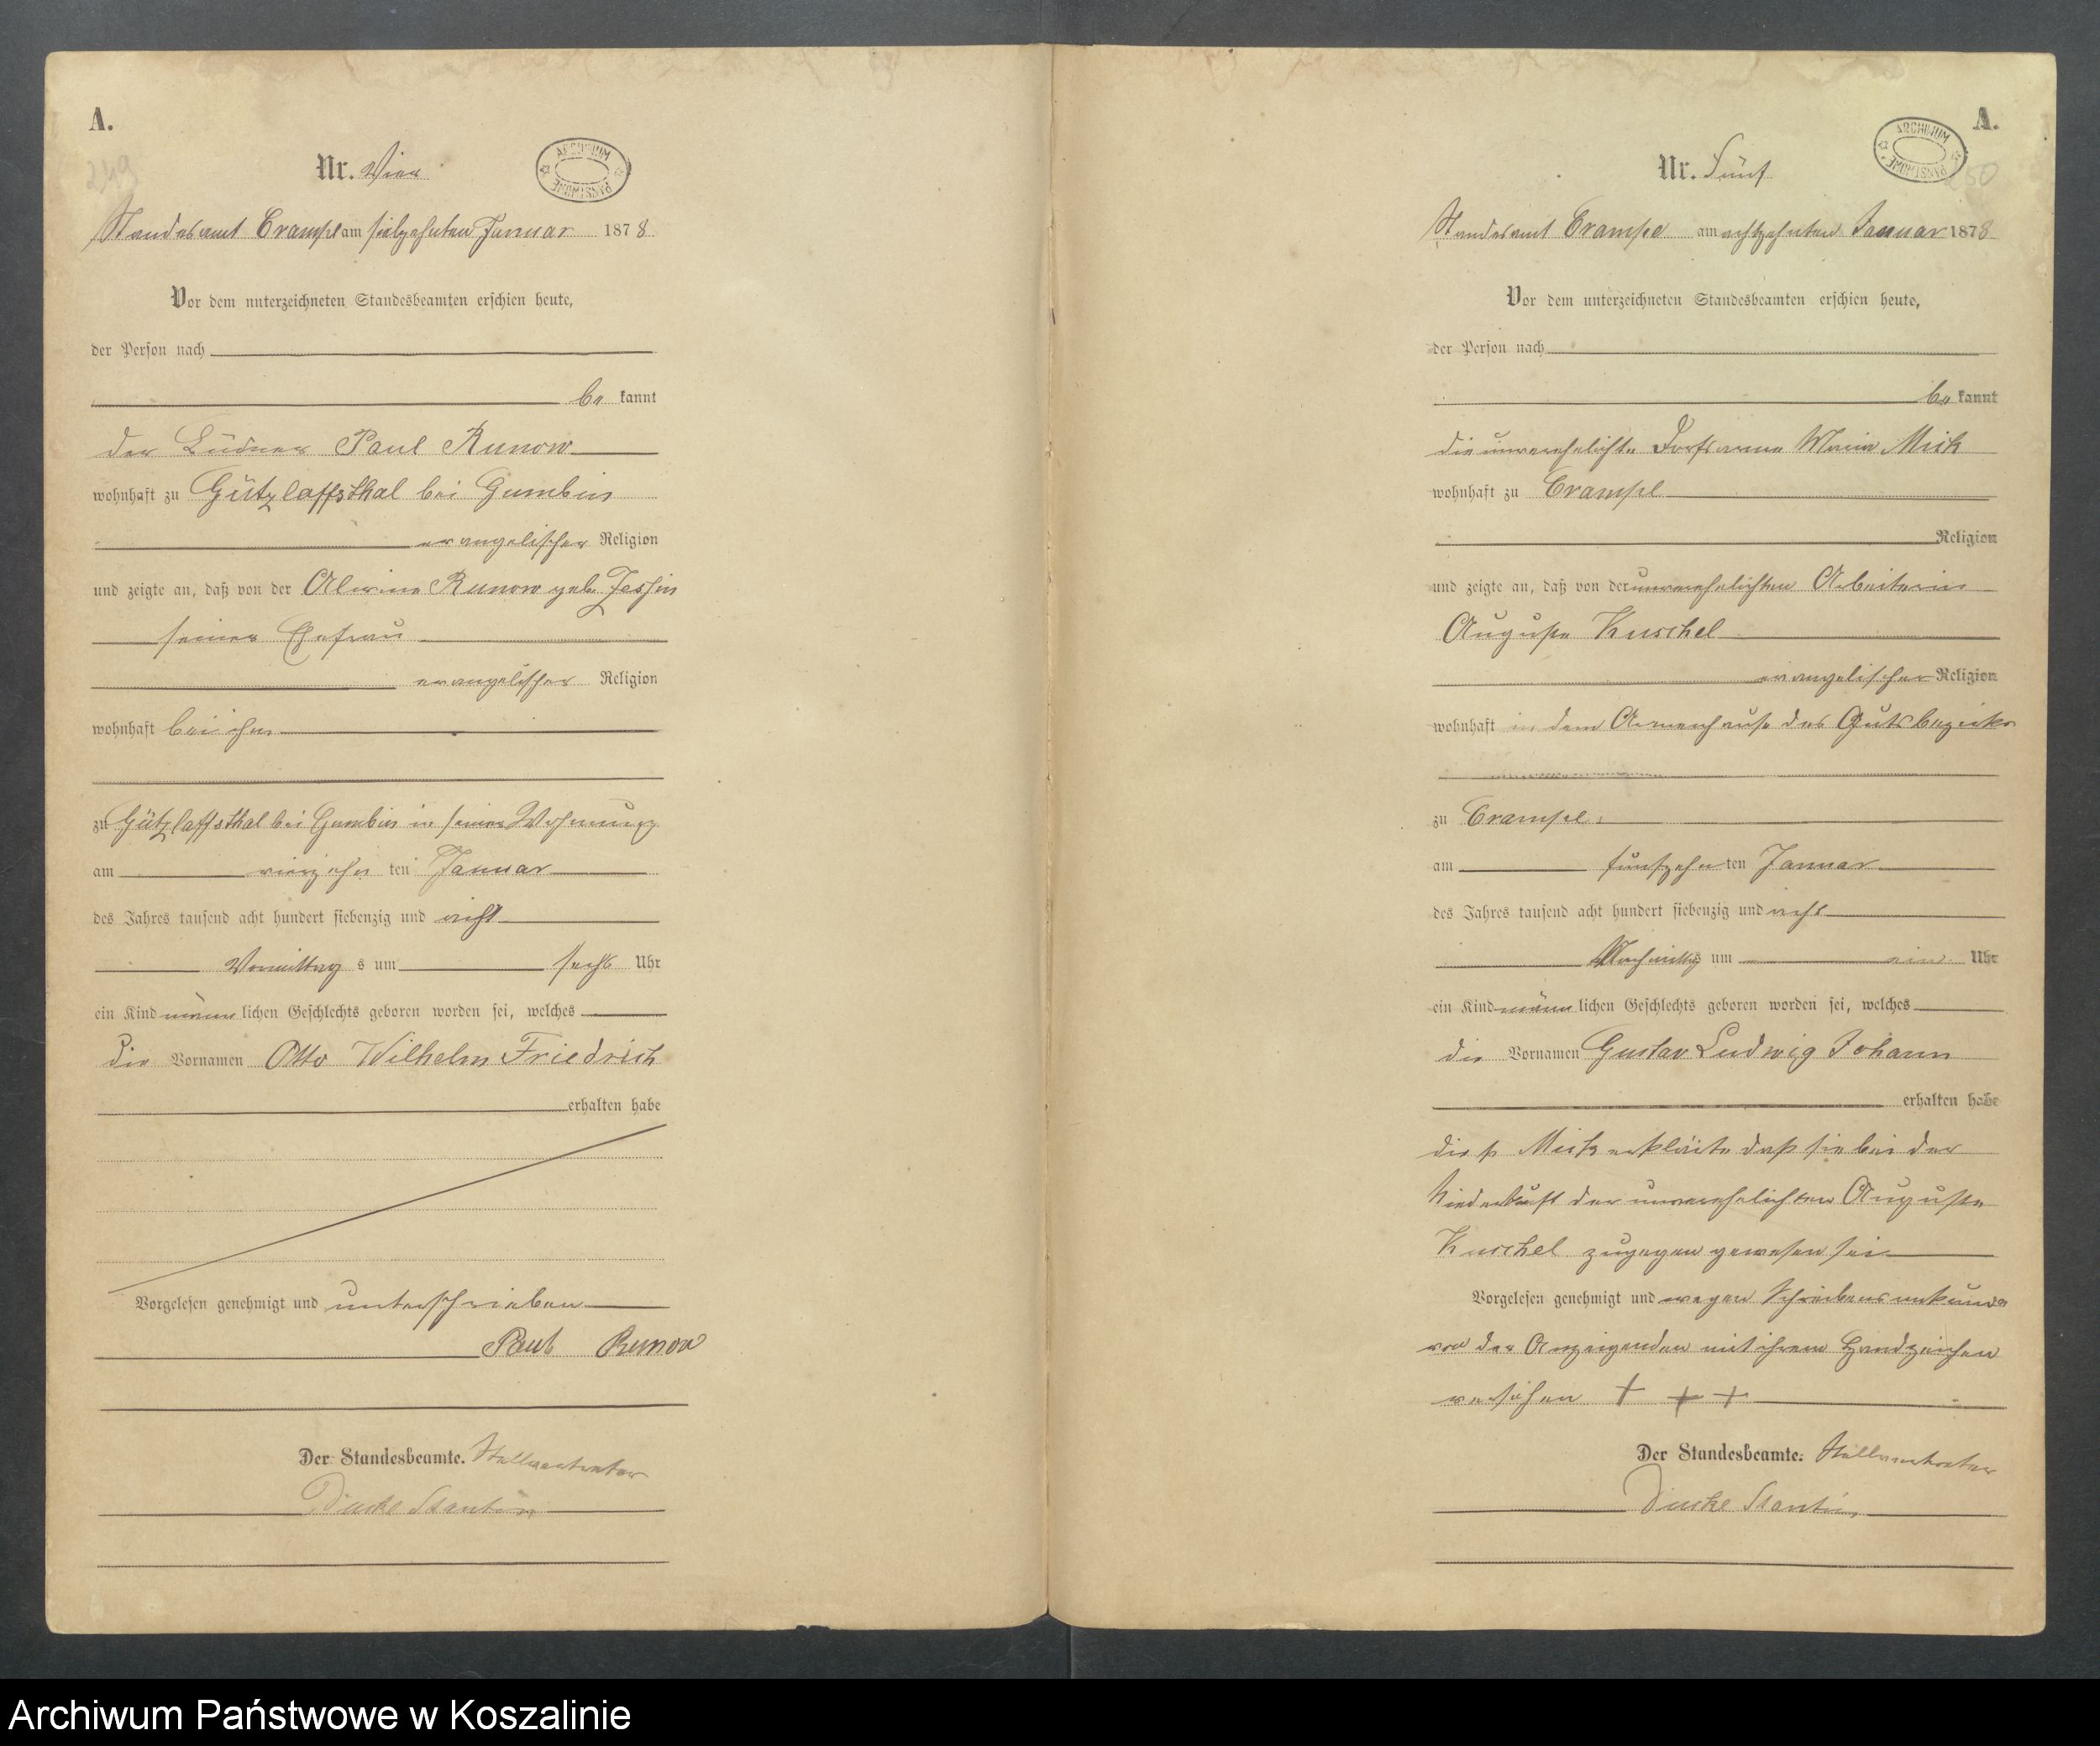 A.
249
Nr. Vier
ARCHIWUM
PAŃSTWOWE
Standesamt Crampe am siebzehnten Januar 1878
Vor dem unterzeichneten Standesbeamten erschien heute,
der Person nach
be kannt
der Büdner Paul Runow
wohnhaft zu Gützlaffsthal bei Gumbin
evangelischer Religion
und zeigte an, daß von der Alwine Runow geb.
seiner Ehefrau
evangelischer Religion
wohnhaft bei ihm
zu Gützlaffsthal bei Gumbin in seiner Wohnung
am vierzehn ten Januar
des Jahres tausend acht hundert siebenzig und acht
Vormittag s um sechs Uhr
ein Kind männ lichen Geschlechts geboren worden sei, welches
die Vornamen Otto Wilhelm Friedrich
erhalten habe
Vorgelesen genehmigt und unterschrieben
Paul Runow
Der Standesbeamte. Stellvertreter
A.
250
Nr. Fünf
ARCHIWUM
PAŃSTWOWE
Standesamt Crampe am achtzehnten Januar 1878
Vor dem unterzeichneten Standesbeamten erschien heute,
der Person nach
be kannt
die unverehelichte Dorfarme Marie Mick
wohnhaft zu Crampe
Religion
und zeigte an, daß von der unverehelichten Arbeiterin
Auguste Kuschel
evangelischer Religion
wohnhaft in dem Armenhause des Gutsbezirks
zu Crampe
am fünfzehn ten Januar
des Jahres tausend acht hundert siebenzig und acht
Nachmittag s um ein Uhr
ein Kind männ lichen Geschlechts geboren worden sei, welches
die Vornamen Gustav Ludwig Johann
erhalten habe
die p Mick erklärte daß sie bei der
Niederkunft der unverehelichten Auguste
Kuschel zugegen gewesen sei
Vorgelesen genehmigt und wegen Schreibensunkunde
von der Anzeigenden mit ihrem Handzeichen
versehen + + +
Der Standesbeamte. Stellvertreter
Archiwum Państwowe w Koszalinie